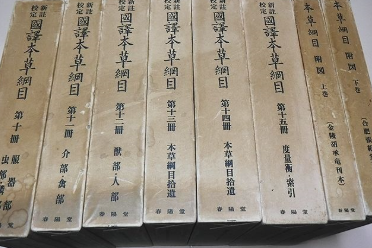 新註校定 國譯本草綱目 第十冊 服器部 虫部
春陽堂
新註校定 國譯本草綱目 第十一冊 介部・禽部
春陽堂
新註校定 國譯本草綱目 第十二冊 獸部・人部
春陽堂
新註校定 國譯本草綱目 第十三冊 本草綱目拾遺
春陽堂
新註校定 國譯本草綱目 第十四冊 本草綱目拾遺
春陽堂
新註校定 國譯本草綱目 第十五冊 度量衡・索引
春陽堂
本草綱目 附圖 上巻
(金陵胡承竜刊本)
本草綱目 附圖 下巻